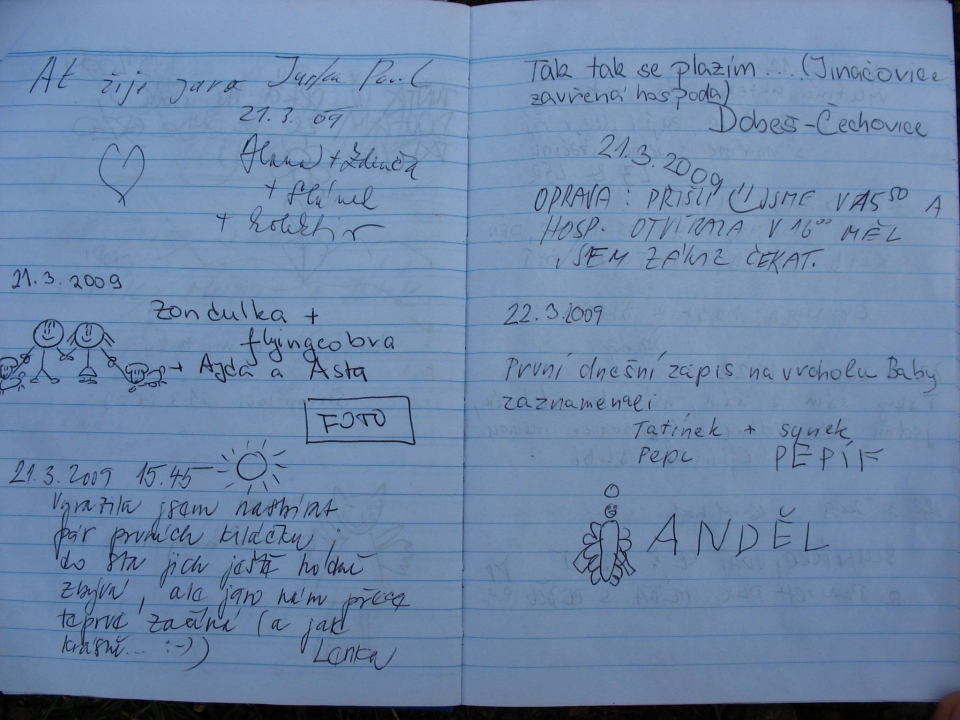 Ať žijí jara
21.3.09
Alena + Zdenča
+ kolektiv
21.3.2009
Zondulka +
flyingcobra
+ Ajda a Asta
FOTO
21.3.2009 15.45
Vyrazila jsem nasbírat
pár prvních kiláčků
do sta jich ještě holdně
zbývá, ale jaro nám přece
teprve začíná (a jak
krásně... :-))
Lenka
Tak tak se plazím... (Jinačovice
zavřená hospoda)
Dobeš-Čechovice
21.3.2009
OPRAVA: PŘIŠLI JSME V 15⁵⁰ A
HOSP. OTVÍRALA V 16⁰⁰ MĚL
JSEM ZÁKAZ ČEKAT.
22.3.2009
První dnešní zápis na vrcholu Baby
zaznamenali
Tatínek + synek
Pepa PEPÍK
ANDĚL